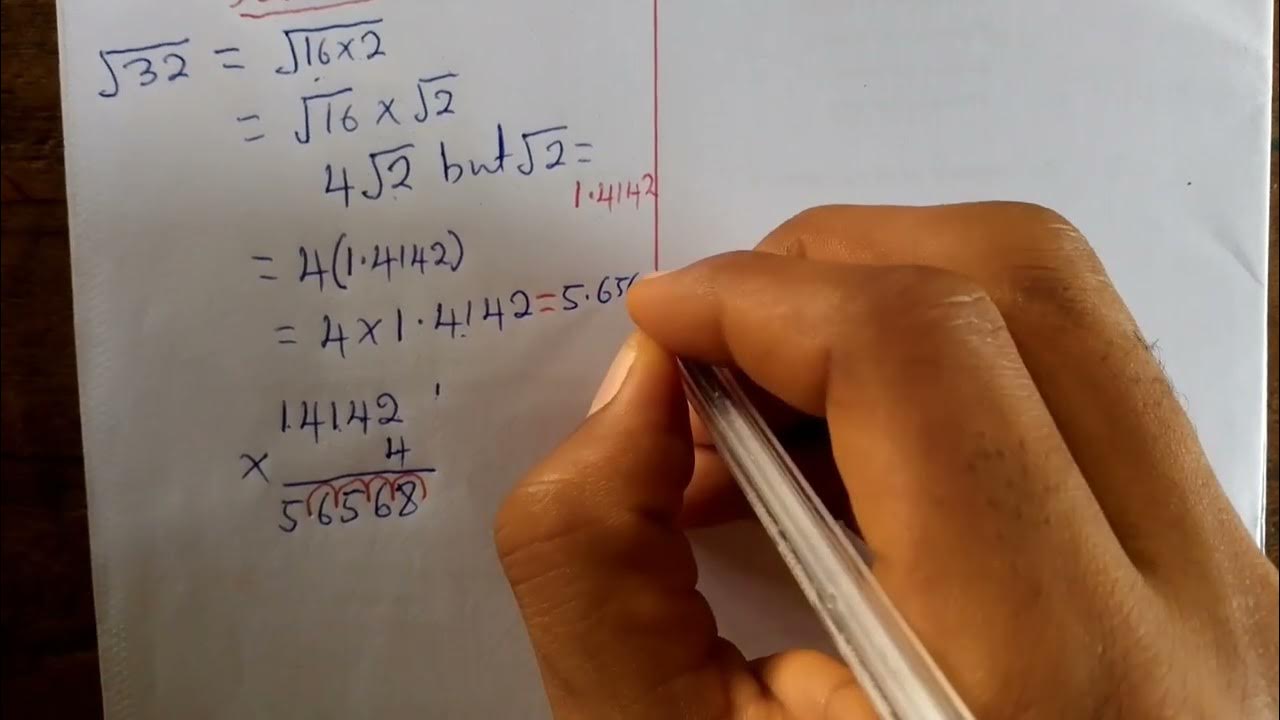 √32 = √16×2
= √16 × √2
4√2 but √2 =
1.4142
= 4(1.4142)
= 4×1.4142=5.656
14142
× 4
56568